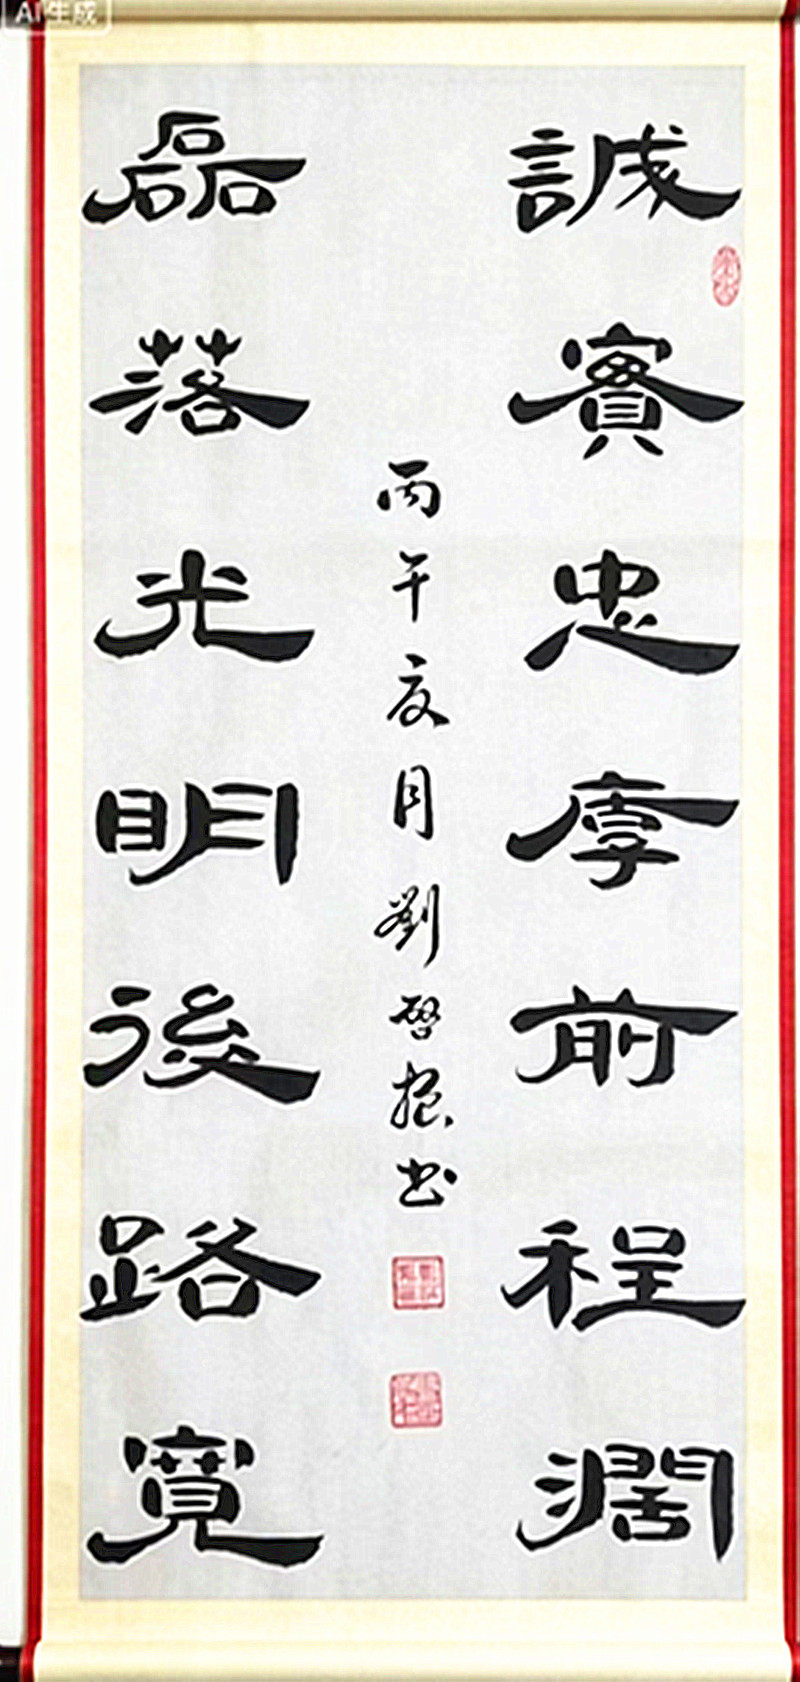 AI生成
誠實忠厚前程濶
磊落光明後路寬
丙午夏月劉啓振书